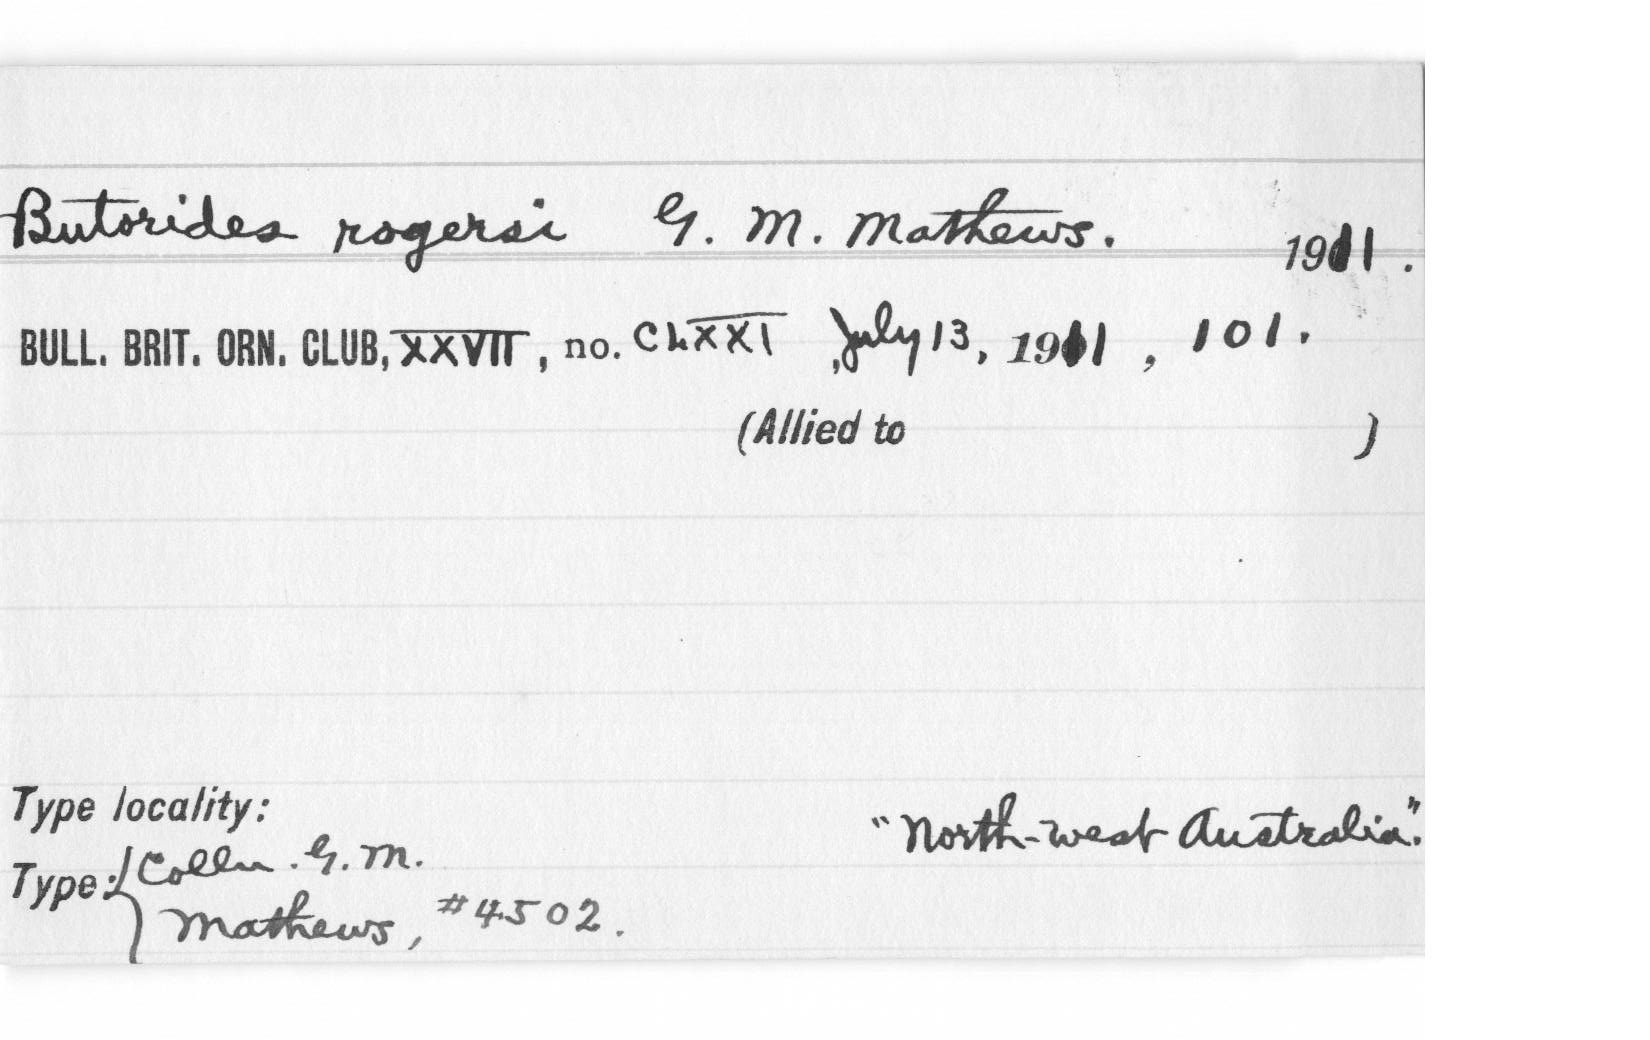 Butorides rogersi G. M. Mathews. 1911.
BULL. BRIT. ORN. CLUB, XXVII, no. CLXXI, July 13, 1911, 101.
(Allied to )
Type locality: "North-west Australia".
Type: { Colln. G. M.
Mathews, #4502.